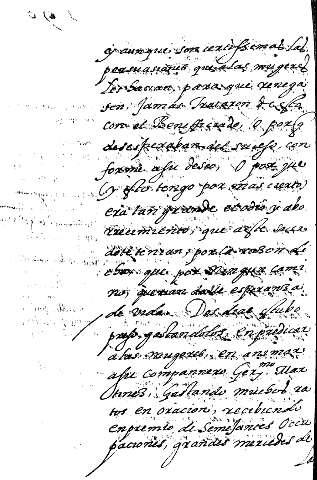 y aunque, son certissimas las
persuasiones que a las mugeres
les hacian, para que renega
sen, Jamas trataron de esto
con el Beneficiado, O porq
desesperaban del suceso con
forme a su deseo, O por que
(y esto tengo por mas cierto)
era tan grande el odio y abo
rrecimiento, que a este sacer
dote tenian, por la razon di
cha, que por ningun cami
no, querian darle esperanza
de vida. Dos dias estubo
preso gastandolos, en predicar
a las mugeres, en animar
a su compannero Gerᵐᵒ Mar
tines, Gastando muchos ra
tos en oracion, recibiendo
en premio de semejantes Ocu
paciones, grandes mercedes de